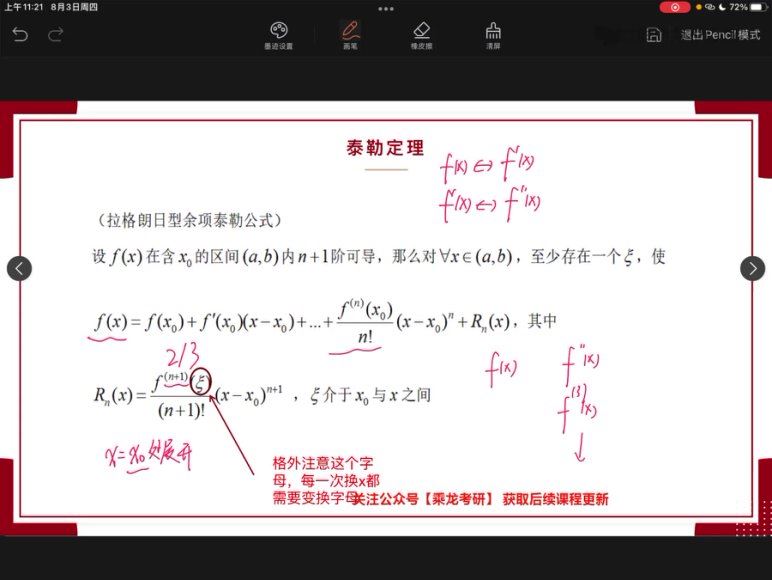 上午11:21 8月3日周四
72%
墨迹设置 画笔 橡皮擦 清屏 退出Pencil模式
泰勒定理
f(x) ⇔ f'(x)
f'(x) ⇔ f''(x)
（拉格朗日型余项泰勒公式）
设 f(x) 在含 x₀ 的区间 (a,b) 内 n+1 阶可导，那么对 ∀x∈(a,b)，至少存在一个 ξ，使
f(x) = f(x₀) + f'(x₀)(x−x₀) + ... + f⁽ⁿ⁾(x₀)/n! (x−x₀)ⁿ + Rₙ(x)，其中
2/3
f(x) f''(x)
Rₙ(x) = f⁽ⁿ⁺¹⁾(ξ)/(n+1)! (x−x₀)ⁿ⁺¹ ，ξ 介于 x₀ 与 x 之间
f⁽³⁾(x)
↓
x=x₀处展开
格外注意这个字
母，每一次换x都
需要变换字母
关注公众号【乘龙考研】 获取后续课程更新